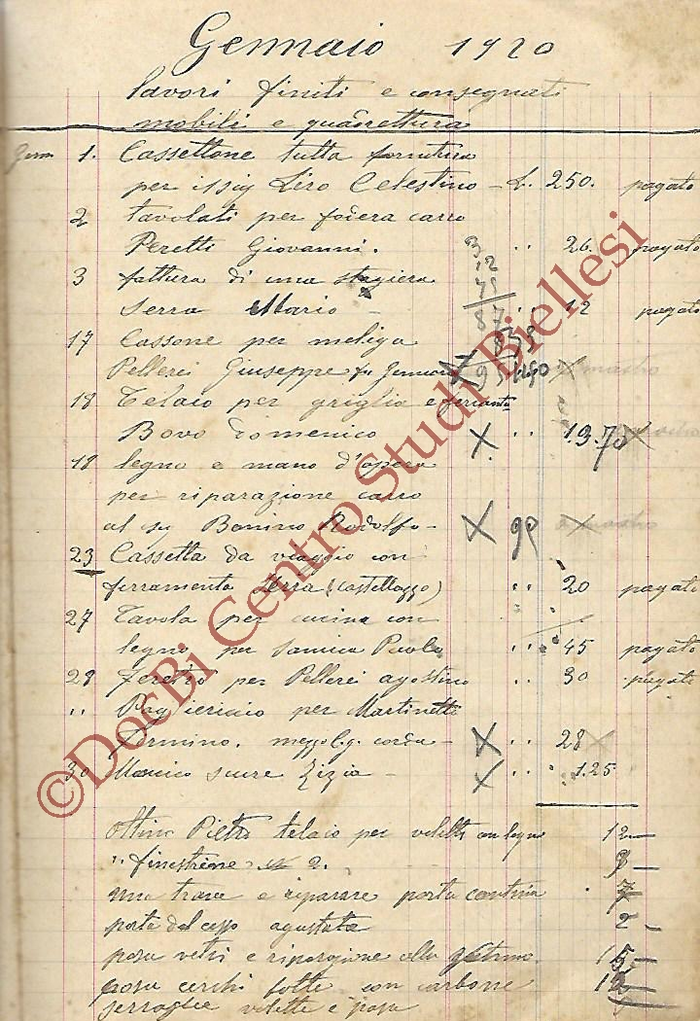 Gennaio 1920
lavori finiti e consegnati
mobili e quadrettura
Genn 1. Cassettone tutta fornitura
per il sig Liro Celestino - L. 250. pagato
2 tavolati per fodera carro
Peretti Giovanni. " 26. pagato
3 fattura di una stagiera
Serra Mario - " 12 pagato
17 Cassone per meliga
Pellerei Giuseppe fu
18 Telaio per griglia e
Bovo Domenico X " 13.70 X
18 legno e mano d'opera
per riparazione carro
al sig Bonino Rodolfo - X 90 X
23 Cassetta da viaggio con
ferramenta Serra (Castellazzo) " 20 pagato
27 Tavola per cucina con
legno per Paolo " 45 pagato
28 feretro per Pellerei agostino " 30 pagato
" Pagliericcio per Martinetti
Firmino. corda - X " 28 X
30 Manico scure Zizia - X " 1.25
Ottino Pietro telaio per veletta con legno 12 -
" finestrone 2.
una trave e riparare porta cantina 7
porta del cesso agustata 2 -
posa vetri e riparazione alla 15 -
posa cerchi fatte con carbone
serraglia velette e posa
©DocBi Centro Studi Biellesi